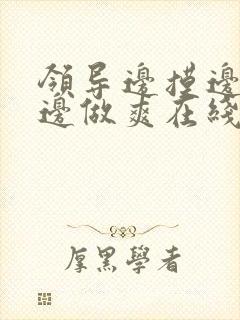 領导邊摸邊
邊做爽在綫
厚黑學者